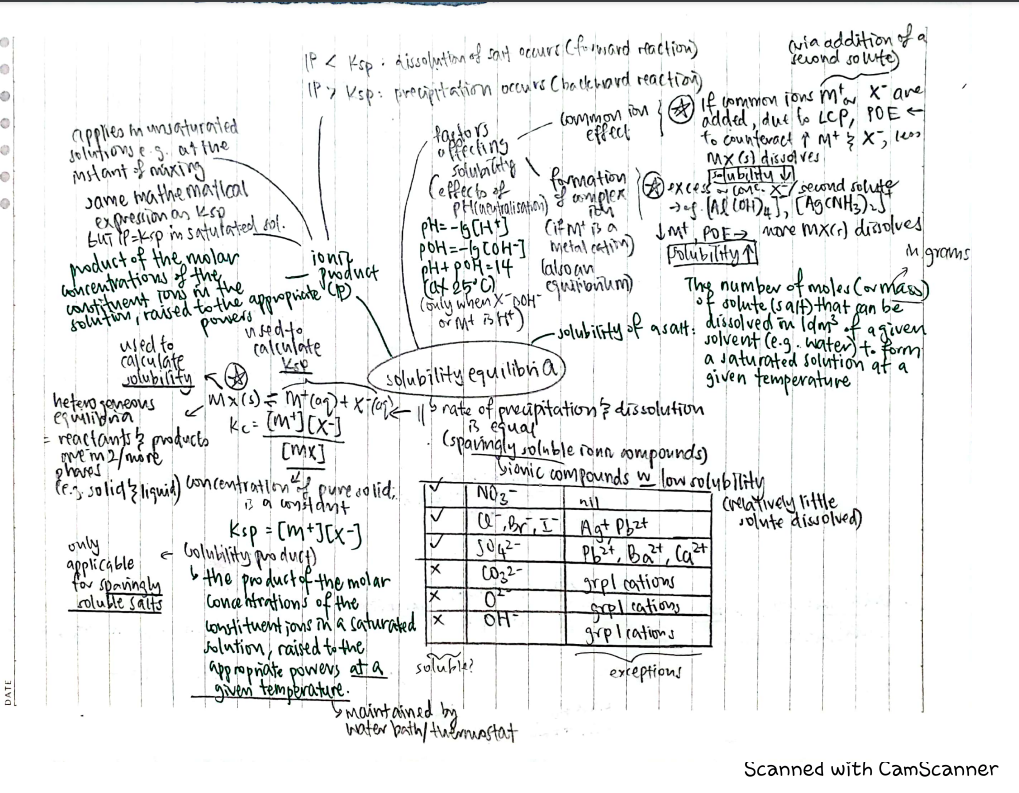 IP < Ksp: dissolution of salt occurs (forward reaction)
IP > Ksp: precipitation occurs (backward reaction)
(via addition of a
second solute)
applies in unsaturated
solutions e.g. at the
instant of mixing
same mathematical
expression as Ksp
but IP=Ksp in saturated sol.
product of the molar
concentrations of the
constituent ions in the
solution, raised to the appropriate
powers
ionic
product
(IP)
factors
affecting
solubility
(effects of
pH (neutralisation)
pH=-lg[H+]
pOH=-lg[OH-]
pH+pOH=14
(at 25°C)
(only when X- is OH-
or M+ is H+)
common ion
effect
If common ions M+ or X- are
added, due to LCP, POE ←
to counteract ↑ M+ & X-, less
MX(s) dissolves
solubility ↓
formation
of complex
ion
(if M+ is a
metal cation)
(also an
equilibrium)
excess or conc. X-/second solute
→ eg. [Al(OH)4]-, [Ag(NH3)2]+
↓M+, POE → more MX(s) dissolves
solubility ↑
in grams
solubility of a salt:
The number of moles (or mass)
of solute (salt) that can be
dissolved in 1dm3 of a given
solvent (e.g. water) to form
a saturated solution at a
given temperature
solubility equilibria
used to
calculate
solubility
used to
calculate
Ksp
MX(s) ⇌ M+(aq) + X-(aq)
Kc = [M+][X-]
[MX]
heterogeneous
equilibria
= reactants & products
are in 2/more
phases
(e.g. solid & liquid)
rate of precipitation & dissolution
is equal
(sparingly soluble ionic compounds)
ionic compounds w low solubility
(relatively little
solute dissolved)
concentration of pure solid
is a constant
Ksp = [M+][X-]
(solubility product)
only
applicable
for sparingly
soluble salts
the product of the molar
concentrations of the
constituent ions in a saturated
solution, raised to the
appropriate powers at a
given temperature.
maintained by
water bath/thermostat
✓ NO3- nil
✓ Cl-, Br-, I- Ag+ Pb2+
✓ SO42- Pb2+, Ba2+, Ca2+
× CO32- grp1 cations
× O2- grp1 cations
× OH- grp1 cations
soluble?
exceptions
DATE
Scanned with CamScanner